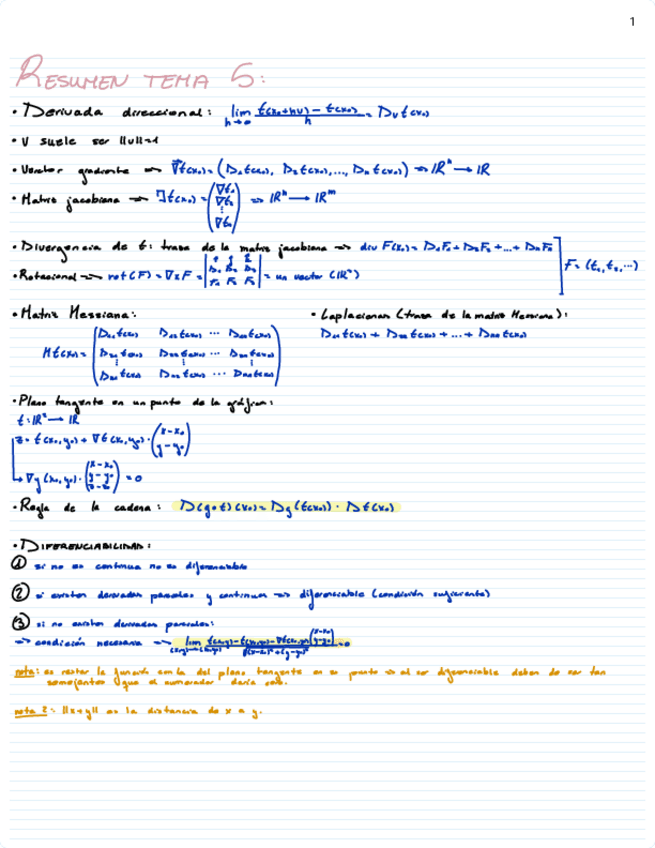 1
RESUMEN TEMA 5:
• Derivada direccional: lim h→0 f(x₀+hv) - f(x₀) / h = Dᵥf(x₀)
• v suele ser ||v||=1
• Vector gradiente → ∇f(x₀) = (D₁f(x₀), D₂f(x₀), ..., Dₙf(x₀)) → ℝⁿ → ℝ
• Matriz jacobiana → Jf(x₀) = (∇f₁ ∇f₂ ⋮ ∇fₙ) → ℝⁿ → ℝᵐ
• Divergencia de f: traza de la matriz jacobiana → div F(x₀) = D₁F₁ + D₂F₂ + ... + DₙFₙ
• Rotacional → rot(F) = ∇xF = | D₁ D₂ D₃ F₁ F₂ F₃ | = un vector (ℝⁿ)
F = (f₁, f₂, ...)
• Matriz Hessiana:
Hf(x₀) = (D₁₁f(x₀) D₁₂f(x₀) ... D₁ₙf(x₀)
D₂₁f(x₀) D₂₂f(x₀) ... D₂ₙf(x₀)
Dₙ₁f(x₀) Dₙ₂f(x₀) ... Dₙₙf(x₀))
• Laplaciana (traza de la matriz Hessiana):
D₁₁f(x₀) + D₂₂f(x₀) + ... + Dₙₙf(x₀)
• Plano tangente en un punto de la gráfica:
f: ℝ² → ℝ
z = f(x₀,y₀) + ∇f(x₀,y₀) · (x-x₀ y-y₀)
↳ ∇g(x₀,y₀) · (x-x₀ y-y₀ z-z₀) = 0
• Regla de la cadena: D(g∘f)(x₀) = Dg(f(x₀)) · Df(x₀)
• DIFERENCIABILIDAD:
① si no es continua no es diferenciable
② si existen derivadas parciales y continuas → diferenciable (condición suficiente)
③ si no existen derivadas parciales:
→ condición necesaria → lim (x,y)→(x₀,y₀) f(x,y) - f(x₀,y₀) - ∇f(x₀,y₀)(x-x₀ y-y₀) / √(x-x₀)²+(y-y₀)² = 0
nota: es restar la función con la del plano tangente en ese punto → al ser diferenciable deben de ser tan
semejantes que el numerador daría cero.
nota 2: ||x+y|| es la distancia de x a y.